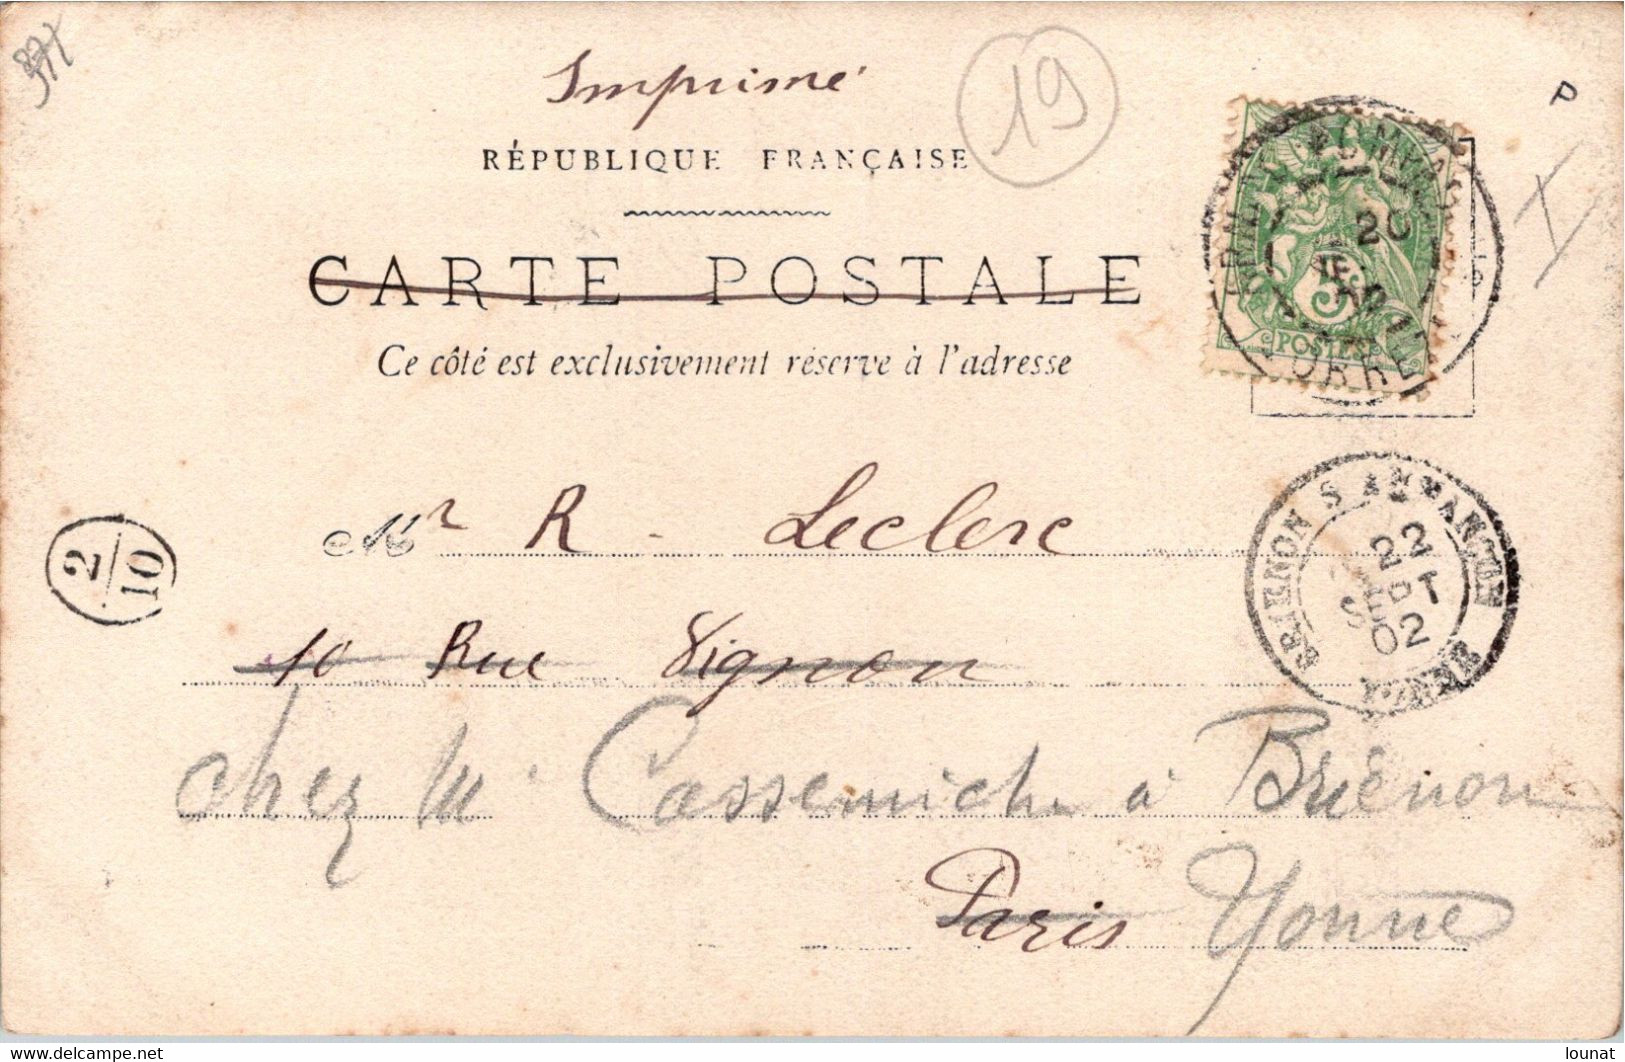 Imprimé
19
P
RÉPUBLIQUE FRANÇAISE
CARTE POSTALE
Ce côté est exclusivement réservé à l'adresse
20
5
POSTES
CORRÈZE
Mr R. Leclerc
BRIENON S ARMANÇON
22
SEPT
02
YONNE
2/10
10 Rue Vignon
chez Mr Cassemiche à Briénon
Paris Yonne
www.delcampe.net
lounat